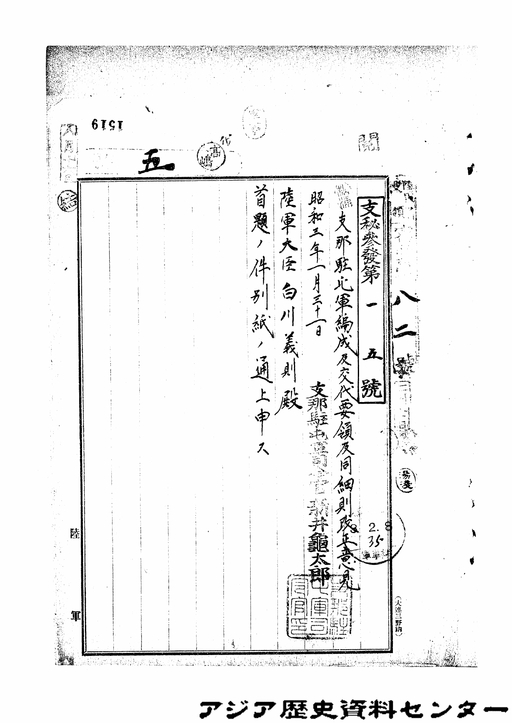 1519
五
支秘參發第一五號
支那駐屯軍編成及交代要領及同細則改正意見
昭和三年一月三十一日
支那駐屯軍司令官 新井龜太郎
陸軍大臣 白川義則 殿
首題ノ件別紙ノ通上申ス
八二
2.8
35
陸軍
アジア歴史資料センター